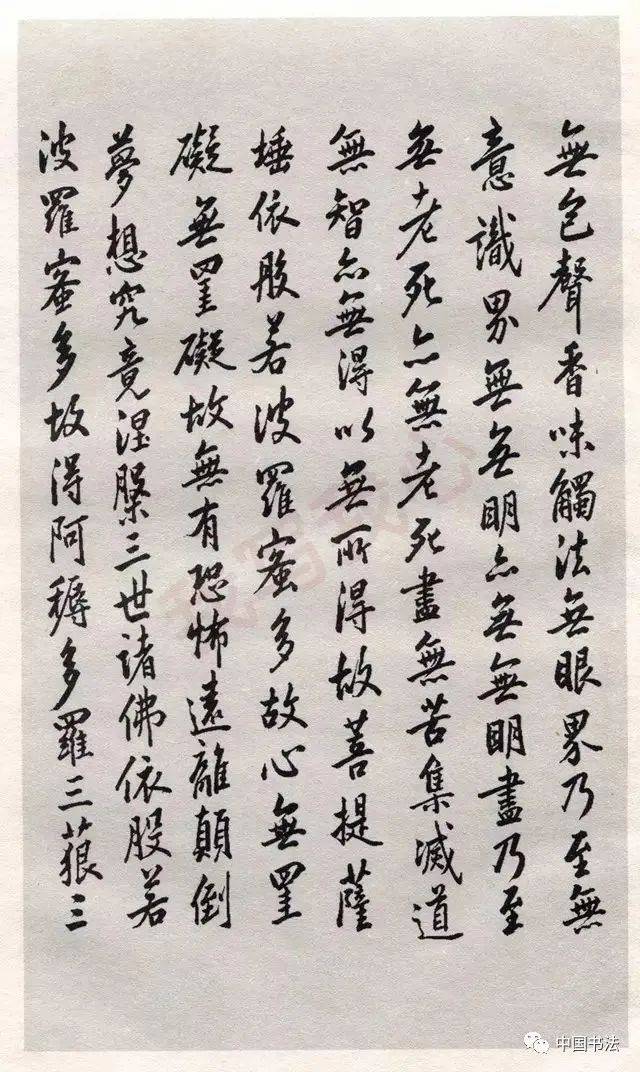 無色聲香味觸法無眼界乃至無
意識界無無明亦無無明盡乃至
無老死亦無老死盡無苦集滅道
無智亦無得以無所得故菩提薩
埵依般若波羅蜜多故心無罣
礙無罣礙故無有恐怖遠離顛倒
夢想究竟涅槃三世諸佛依般若
波羅蜜多故得阿耨多羅三藐三
中国书法